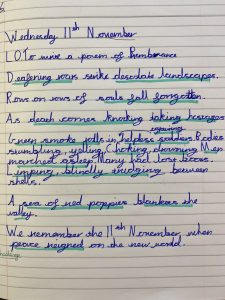 Wednesday 11th November
LO To write a poem of Rembrance
Deafening roars strike desolate landscapes.
Rows on rows of souls fall forgotten.
As death comes knocking taking hostages
Green smoke falls in soldiers Bodies
stumbling, yelling, Choking, drowning Men
marched asleep Many had lost boots.
Limping, blindly trudging between
shells.
A sea of red poppies blankets the
valley.
We remember the 11th November, when
peace reigned on the new world.